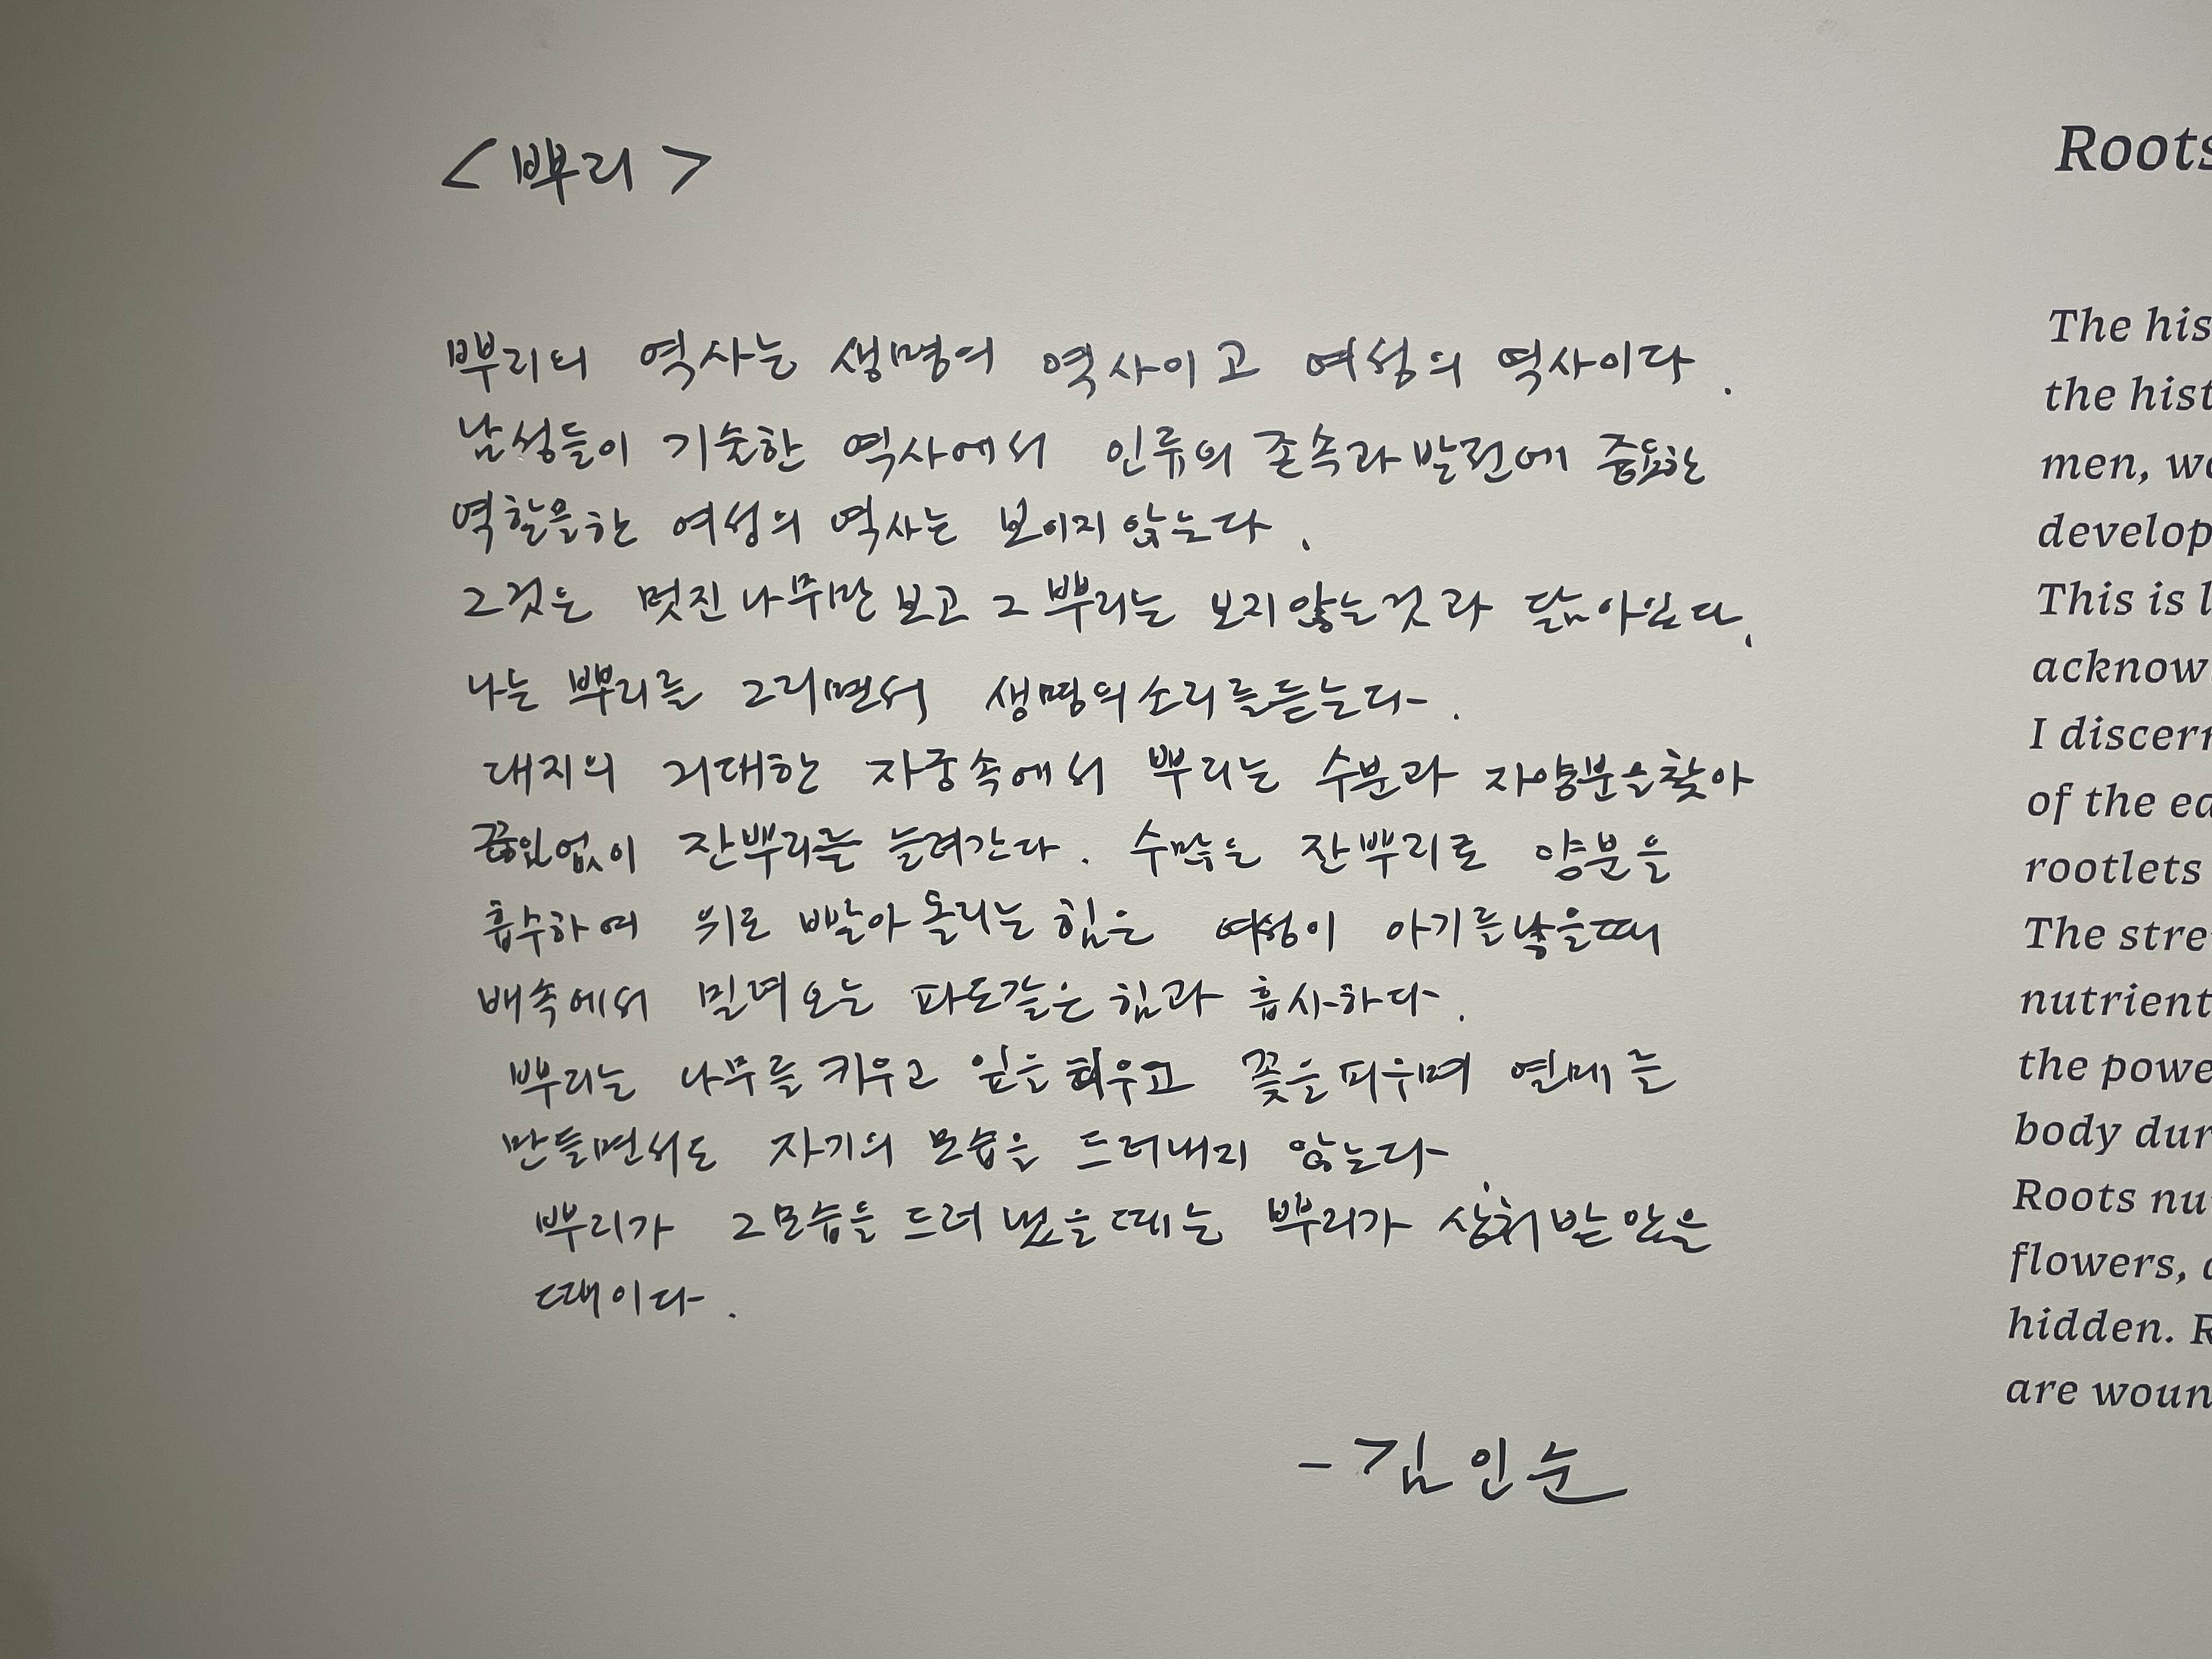 <뿌리>
뿌리의 역사는 생명의 역사이고 여성의 역사이다.
남성들이 기술한 역사에서 인류의 존속과 발전에 중요한
역할을한 여성의 역사는 보이지 않는다.
그것은 멋진 나무만 보고 그 뿌리는 보지않는것과 닮아있다.
나는 뿌리를 그리면서 생명의 소리를 듣는다.
대지의 거대한 자궁속에서 뿌리는 수분과 자양분을 찾아
끊임없이 잔뿌리를 늘려간다. 수많은 잔뿌리로 양분을
흡수하여 위로 빨아 올리는 힘은 여성이 아기를 낳을때
배속에서 밀려오는 파도같은 힘과 흡사하다.
뿌리는 나무를 키우고 잎을 틔우고 꽃을 피우며 열매를
만들면서도 자기의 모습을 드러내지 않는다
뿌리가 그 모습을 드러냈을때는 뿌리가 상처받았을
때이다.
- 김인순
Roots
The his
the hist
men, wo
develop
This is l
acknow
I discern
of the ea
rootlets
The stre
nutrient
the powe
body dur
Roots nu
flowers, a
hidden. R
are woun